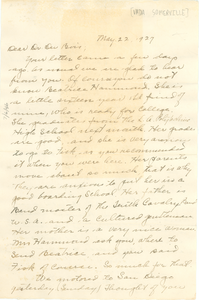 May 23. 1927
Dear Dr. Du Bois:
Your letter came a few days
ago. As usual we are glad to hear
from you. Of course you do not
know Beatrice Hammond. She is
a little sixteen year old friend of
mine, who is ready for College.
She graduates from the L.A.
High School next month. Her grades
are good, and she is very anxious
to go to Fisk, as you recommended
it when you were here. Her parents
move about so much that is why
they are anxious to put her in a
good boarding school. Her father is
Band master of the Tenth Cavalry Band
U.S.A. and a cultured gentleman
Her mother is a very nice woman
Mrs Hammond ask you, where to
send Beatrice and you said
Fisk of course. So much for that
We motored to San Diego
yesterday (Sunday) thought of you